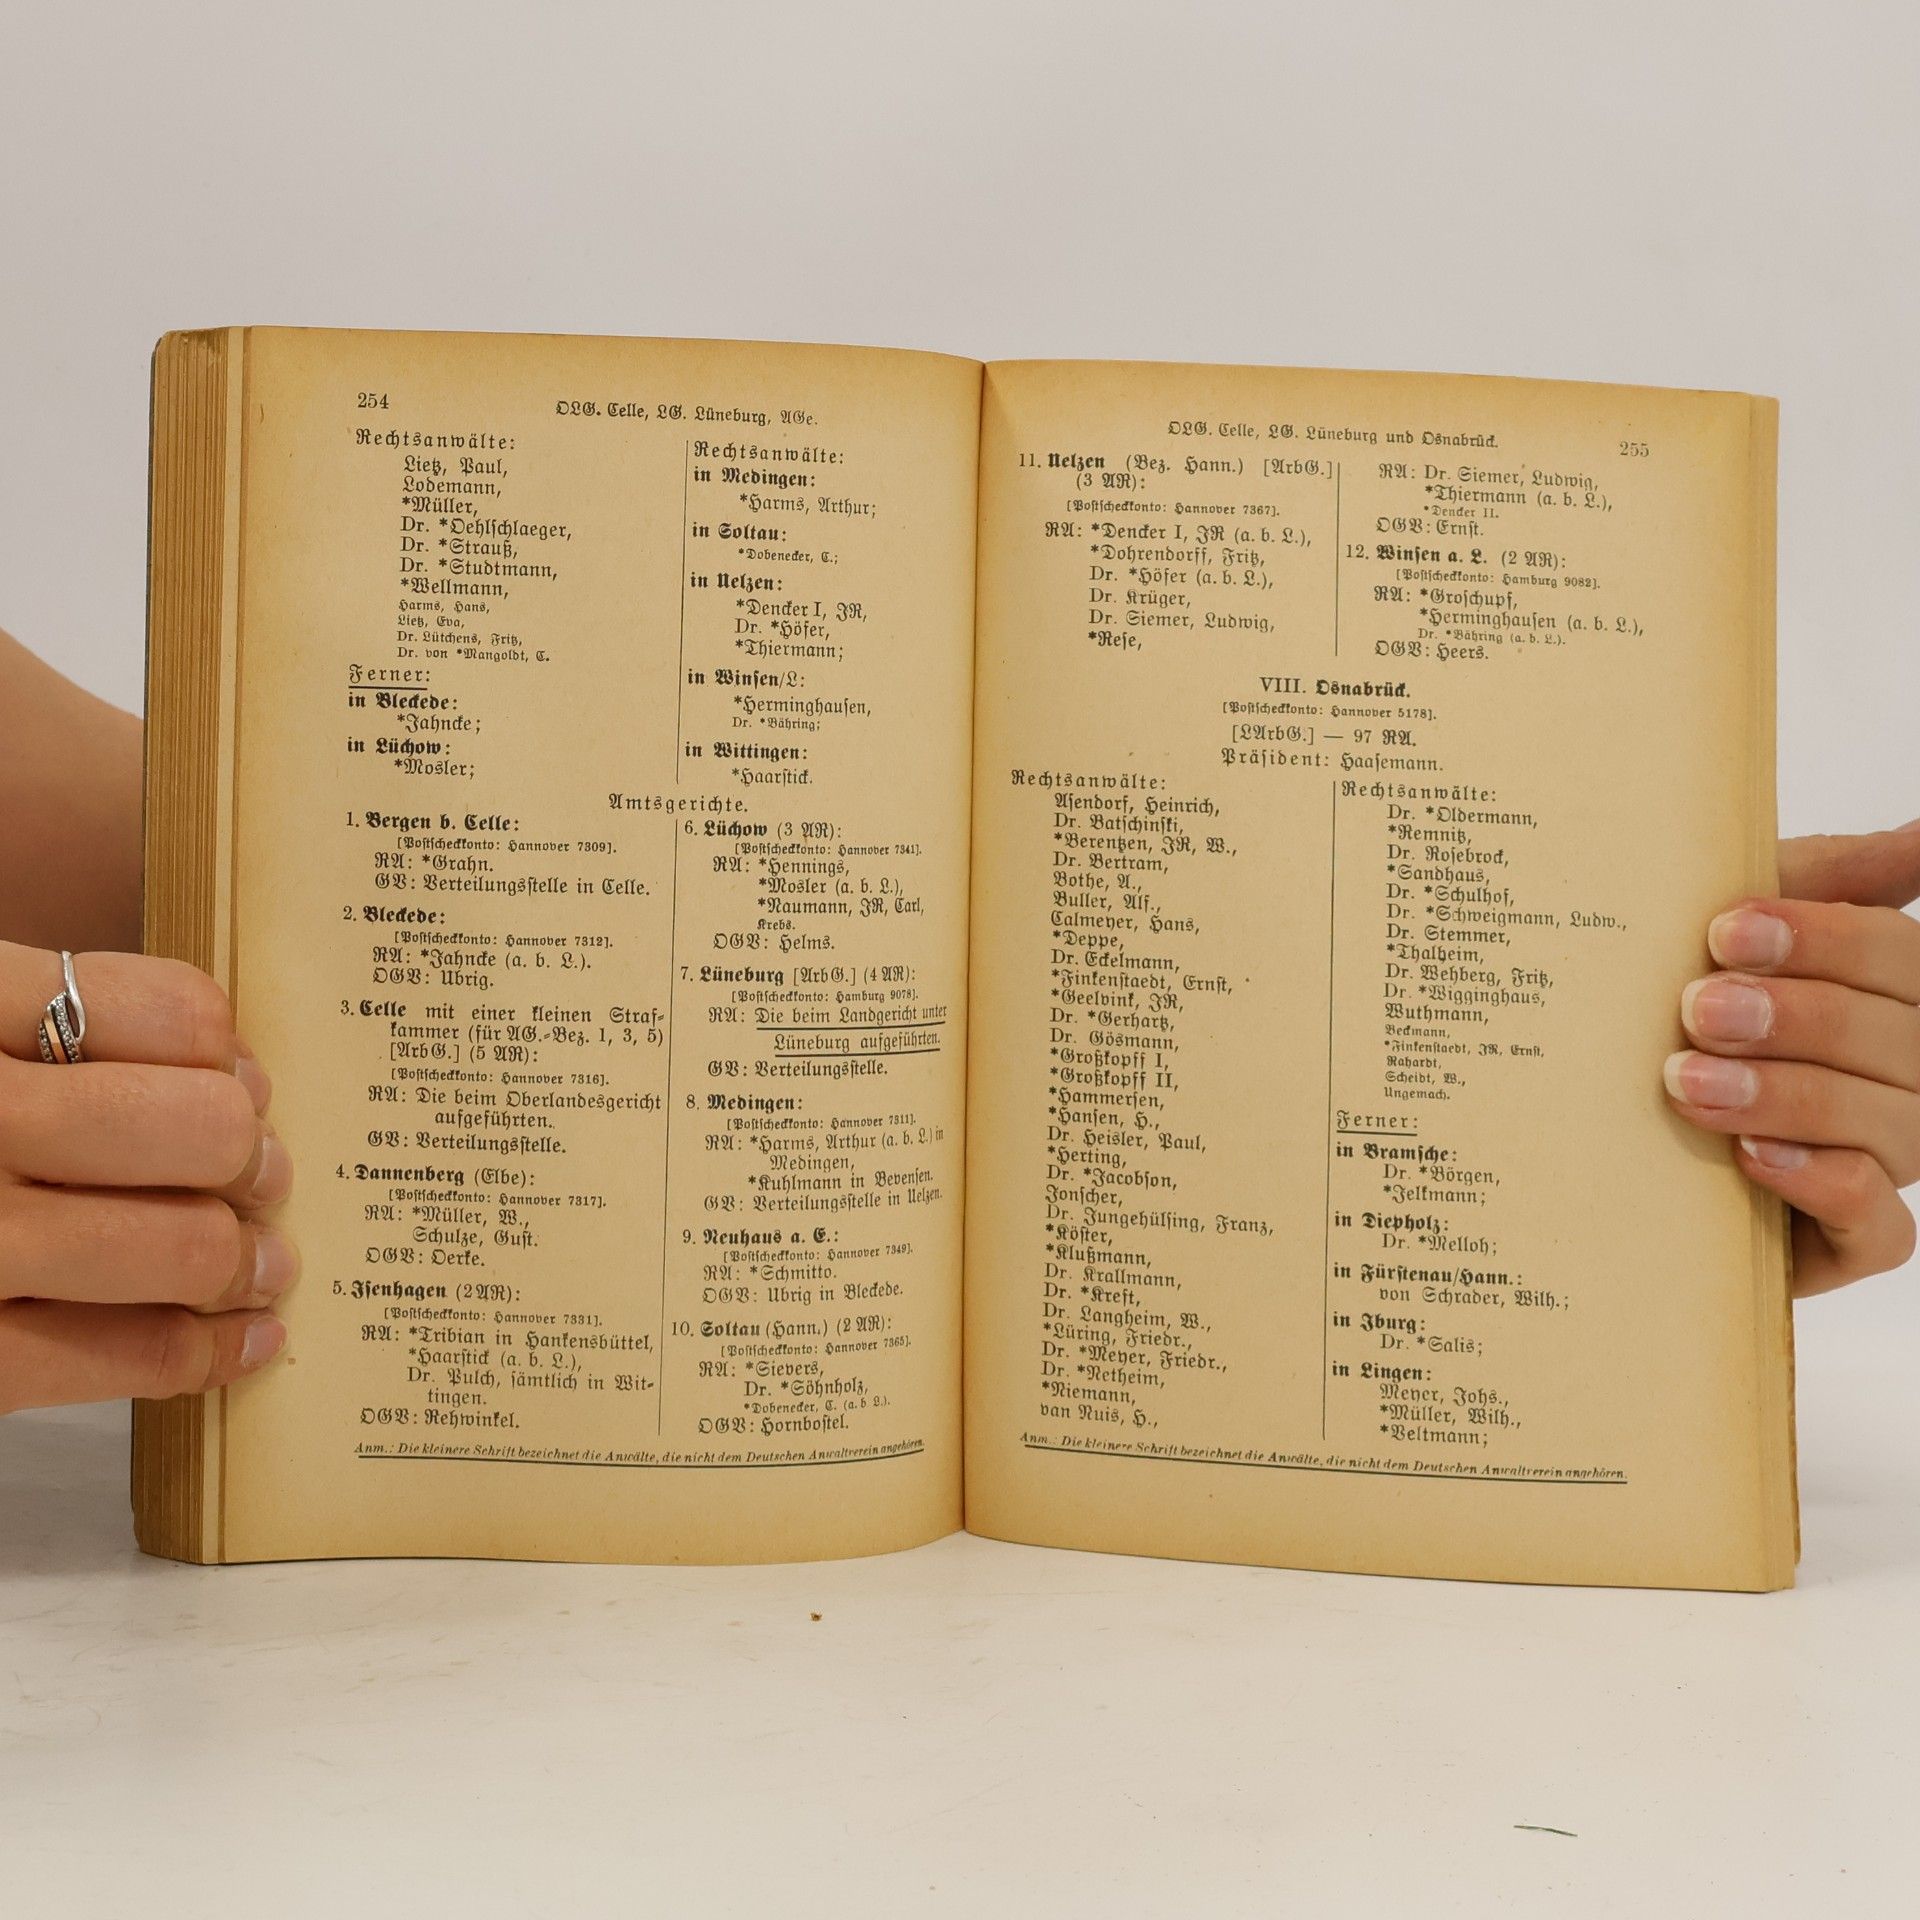 254
OLG. Celle, LG. Lüneburg, AGe.
Rechtsanwälte:
Lietz, Paul,
Lodemann,
*Müller,
Dr. *Oehlschlaeger,
Dr. *Strauß,
Dr. *Studtmann,
*Wellmann,
Harms, Hans,
Lietz, Eva,
Dr. Lütchens, Fritz,
Dr. von *Mangoldt, C.
Ferner:
in Bleckede:
*Jahncke;
in Lüchow:
*Mosler;
Rechtsanwälte:
in Medingen:
*Harms, Arthur;
in Soltau:
*Dobenecker, C.;
in Uelzen:
*Dencker I, JR,
Dr. *Höfer,
*Thiermann;
in Winsen/L:
*Herminghausen,
Dr. *Bähring;
in Wittingen:
*Haarstick.
Amtsgerichte.
1. Bergen b. Celle:
[Postscheckkonto: Hannover 7309].
RA: *Grahn.
GV: Verteilungsstelle in Celle.
2. Bleckede:
[Postscheckkonto: Hannover 7312].
RA: *Jahncke (a. b. L.).
OGV: Ubrig.
3. Celle mit einer kleinen Straf-
kammer (für AG.-Bez. 1, 3, 5)
[ArbG.] (5 AR):
[Postscheckkonto: Hannover 7316].
RA: Die beim Oberlandesgericht
aufgeführten.
GV: Verteilungsstelle.
4. Dannenberg (Elbe):
[Postscheckkonto: Hannover 7317].
RA: *Müller, W.,
Schulze, Gust.
OGV: Oerke.
5. Isenhagen (2 AR):
[Postscheckkonto: Hannover 7331].
RA: *Tribian in Hankensbüttel,
*Haarstick (a. b. L.),
Dr. Pulch, sämtlich in Wit-
tingen.
OGV: Rehwinkel.
6. Lüchow (3 AR):
[Postscheckkonto: Hannover 7341].
RA: *Hennings,
*Mosler (a. b. L.),
*Naumann, JR, Carl,
Krebs.
OGV: Helms.
7. Lüneburg [ArbG.] (4 AR):
[Postscheckkonto: Hamburg 9078].
RA: Die beim Landgericht unter
Lüneburg aufgeführten.
GV: Verteilungsstelle.
8. Medingen:
[Postscheckkonto: Hannover 7311].
RA: *Harms, Arthur (a. b. L.) in
Medingen,
*Kuhlmann in Bevensen.
GV: Verteilungsstelle in Uelzen.
9. Neuhaus a. E.:
[Postscheckkonto: Hannover 7349].
RA: *Schmitto.
OGV: Ubrig in Bleckede.
10. Soltau (Hann.) (2 AR):
[Postscheckkonto: Hannover 7365].
RA: *Sievers,
Dr. *Söhnholz,
*Dobenecker, C. (a. b. L.).
OGV: Hornbostel.
Anm.: Die kleinere Schrift bezeichnet die Anwälte, die nicht dem Deutschen Anwaltverein angehören.
OLG. Celle, LG. Lüneburg und Osnabrück.
255
11. Uelzen (Bez. Hann.) [ArbG.]
(3 AR):
[Postscheckkonto: Hannover 7367].
RA: *Dencker I, JR (a. b. L.),
*Dohrendorff, Fritz,
Dr. *Höfer (a. b. L.),
Dr. Krüger,
Dr. Siemer, Ludwig,
*Rese,
RA: Dr. Siemer, Ludwig,
*Thiermann (a. b. L.),
*Dencker II.
OGV: Ernst.
12. Winsen a. L. (2 AR):
[Postscheckkonto: Hamburg 9082].
RA: *Groschupf,
*Herminghausen (a. b. L.),
Dr. *Bähring (a. b. L.).
OGV: Heers.
VIII. Osnabrück.
[Postscheckkonto: Hannover 5178].
[LArbG.] — 97 RA.
Präsident: Haasemann.
Rechtsanwälte:
Asendorf, Heinrich,
Dr. Batschinski,
*Berentzen, JR, W.,
Dr. Bertram,
Bothe, A.,
Buller, Alf.,
Calmeyer, Hans,
*Deppe,
Dr. Eckelmann,
*Finkenstaedt, Ernst,
*Geelvink, JR,
Dr. *Gerhartz,
Dr. Gösmann,
*Großkopff I,
*Großkopff II,
*Hammersen,
*Hansen, H.,
Dr. Heisler, Paul,
*Herting,
Dr. *Jacobson,
Jonscher,
Dr. Jungehülsing, Franz,
*Köster,
*Klußmann,
Dr. Krallmann,
Dr. *Kreft,
Dr. Langheim, W.,
*Lüring, Friedr.,
Dr. *Meyer, Friedr.,
Dr. *Netheim,
*Niemann,
van Nuis, H.,
Rechtsanwälte:
Dr. *Oldermann,
*Remnitz,
Dr. Rosebrock,
*Sandhaus,
Dr. *Schulhof,
Dr. *Schweigmann, Ludw.,
Dr. Stemmer,
*Thalheim,
Dr. Wehberg, Fritz,
Dr. *Wigginghaus,
Wuthmann,
Beckmann,
*Finkenstaedt, JR, Ernst,
Rahardt,
Scheidt, W.,
Ungemach.
Ferner:
in Bramsche:
Dr. *Börgen,
*Jelkmann;
in Diepholz:
Dr. *Melloh;
in Fürstenau/Hann.:
von Schrader, Wilh.;
in Iburg:
Dr. *Salis;
in Lingen:
Meyer, Johs.,
*Müller, Wilh.,
*Veltmann;
Anm.: Die kleinere Schrift bezeichnet die Anwälte, die nicht dem Deutschen Anwaltverein angehören.